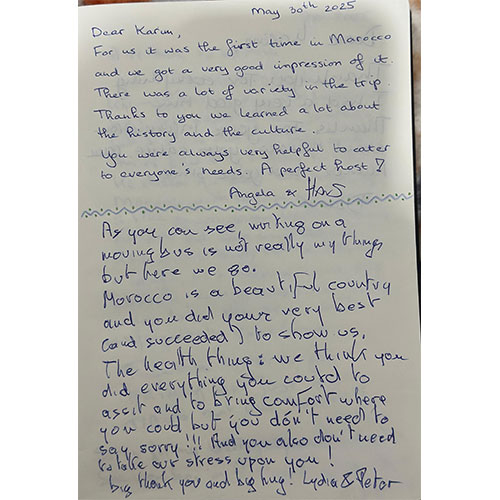 May 30th 2025
Dear Karim,
For us it was the first time in Marocco
and we got a very good impression of it.
There was a lot of variety in the trip
Thanks to you we learned a lot about
the history and the culture.
You were always very helpful to cater
to everyone's needs. A perfect host !
Angela & Hans
As you can see, writing on a
moving bus is not really my things
but here we go.
Morocco is a beautiful country
and you did your very best
(and succeeded) to show us.
The health thing: we think you
did everything you could to
assit and to bring comfort where
you could but you don't need to
say sorry !!! And you also don't need
to take our stress upon you !
big thank you and big hug! Lydia & Peter